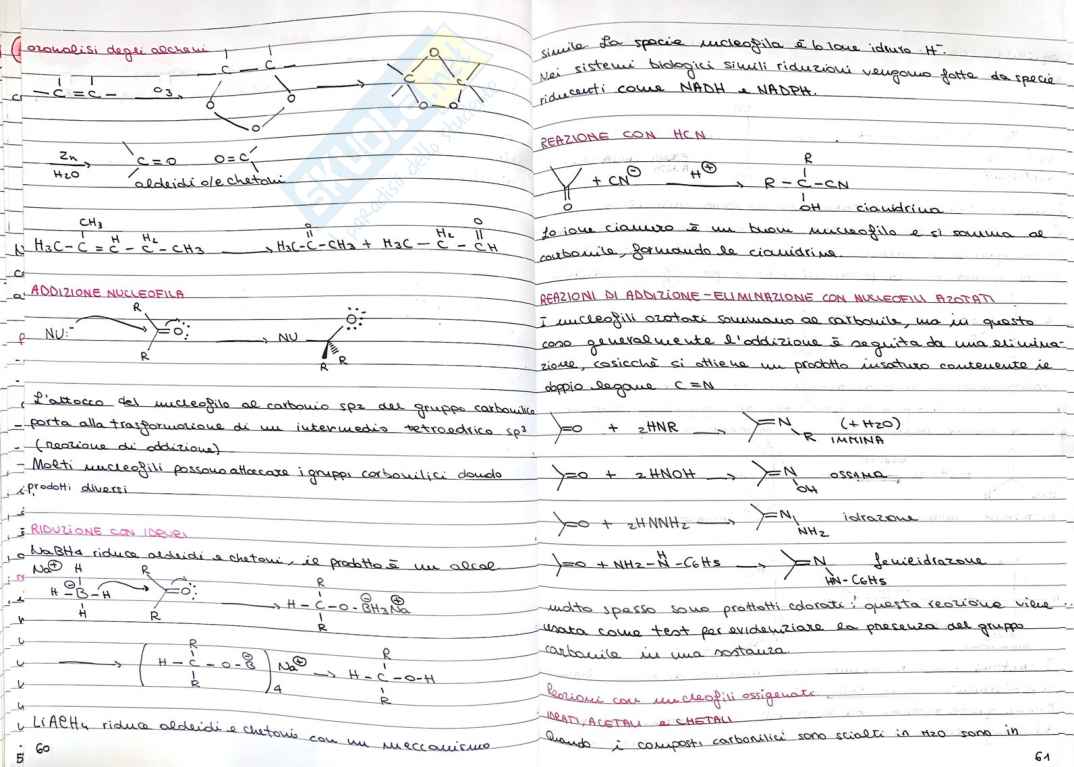 ozonolisi degli alcheni
- C = C -
O3
C C
O O
O
O
C C
O O
Zn
H2O
C = O O = C
aldeidi o/e chetoni
CH3 O O
H3C - C = C - C - CH3 H3C - C - CH3 + H3C - C - CH
H H2 H2
ADDIZIONE NUCLEOFILA
R
NU:- =O: NU O:
R
R R
L'attacco del nucleofilo al carbonio sp2 del gruppo carbonilico
porta alla trasformazione di un intermedio tetraedrico sp3
(reazione di addizione)
- Molti nucleofili possono attaccare i gruppi carbonilici dando
prodotti diversi
RIDUZIONE CON IDRURI
NaBH4 riduce aldeidi e chetoni, il prodotto è un alcol
Na⊕ H R R
H - B - H =O: H - C - O - BH3 Na⊕
H R R
R R
( H - C - O - B )4 Na⊕ H - C - O-H
R R
LiAlH4 riduce aldeidi e chetoni con un meccanismo
60
simile. La specie nucleofila è lo ione idruro H-.
Nei sistemi biologici simili riduzioni vengono fatte da specie
riducenti come NADH e NADPH.
REAZIONE CON HCN
R
+ CN⊖ H⊕ R - C - CN
O OH cianidrina
Lo ione cianuro è un buon nucleofilo e si somma al
carbonile, formando le cianidrine.
REAZIONI DI ADDIZIONE - ELIMINAZIONE CON NUCLEOFILI AZOTATI
I nucleofili azotati sommano al carbonile, ma in questo
caso generalmente l'addizione è seguita da una elimina-
zione, cosicchè si ottiene un prodotto insaturo contenente il
doppio legame C = N
=O + 2HNR =N R (+ H2O)
IMMINA
=O + 2HNOH =N OH OSSIMA
=O + 2HNNH2 =N NH2 idrazone
=O + NH2 - N - C6H5 =N HN-C6H5 fenilidrazone
H
molto spesso sono prottotti colorati: questa reazione viene
usata come test per evidenziare la presenza del gruppo
carbonile in una sostanza.
Reazioni con nucleofili ossigenati.
IDRATI, ACETALI e CHETALI
Quando i composti carbonilici sono sciolti in H2O sono in
61
SKUOLA.net
il paradiso dello studente